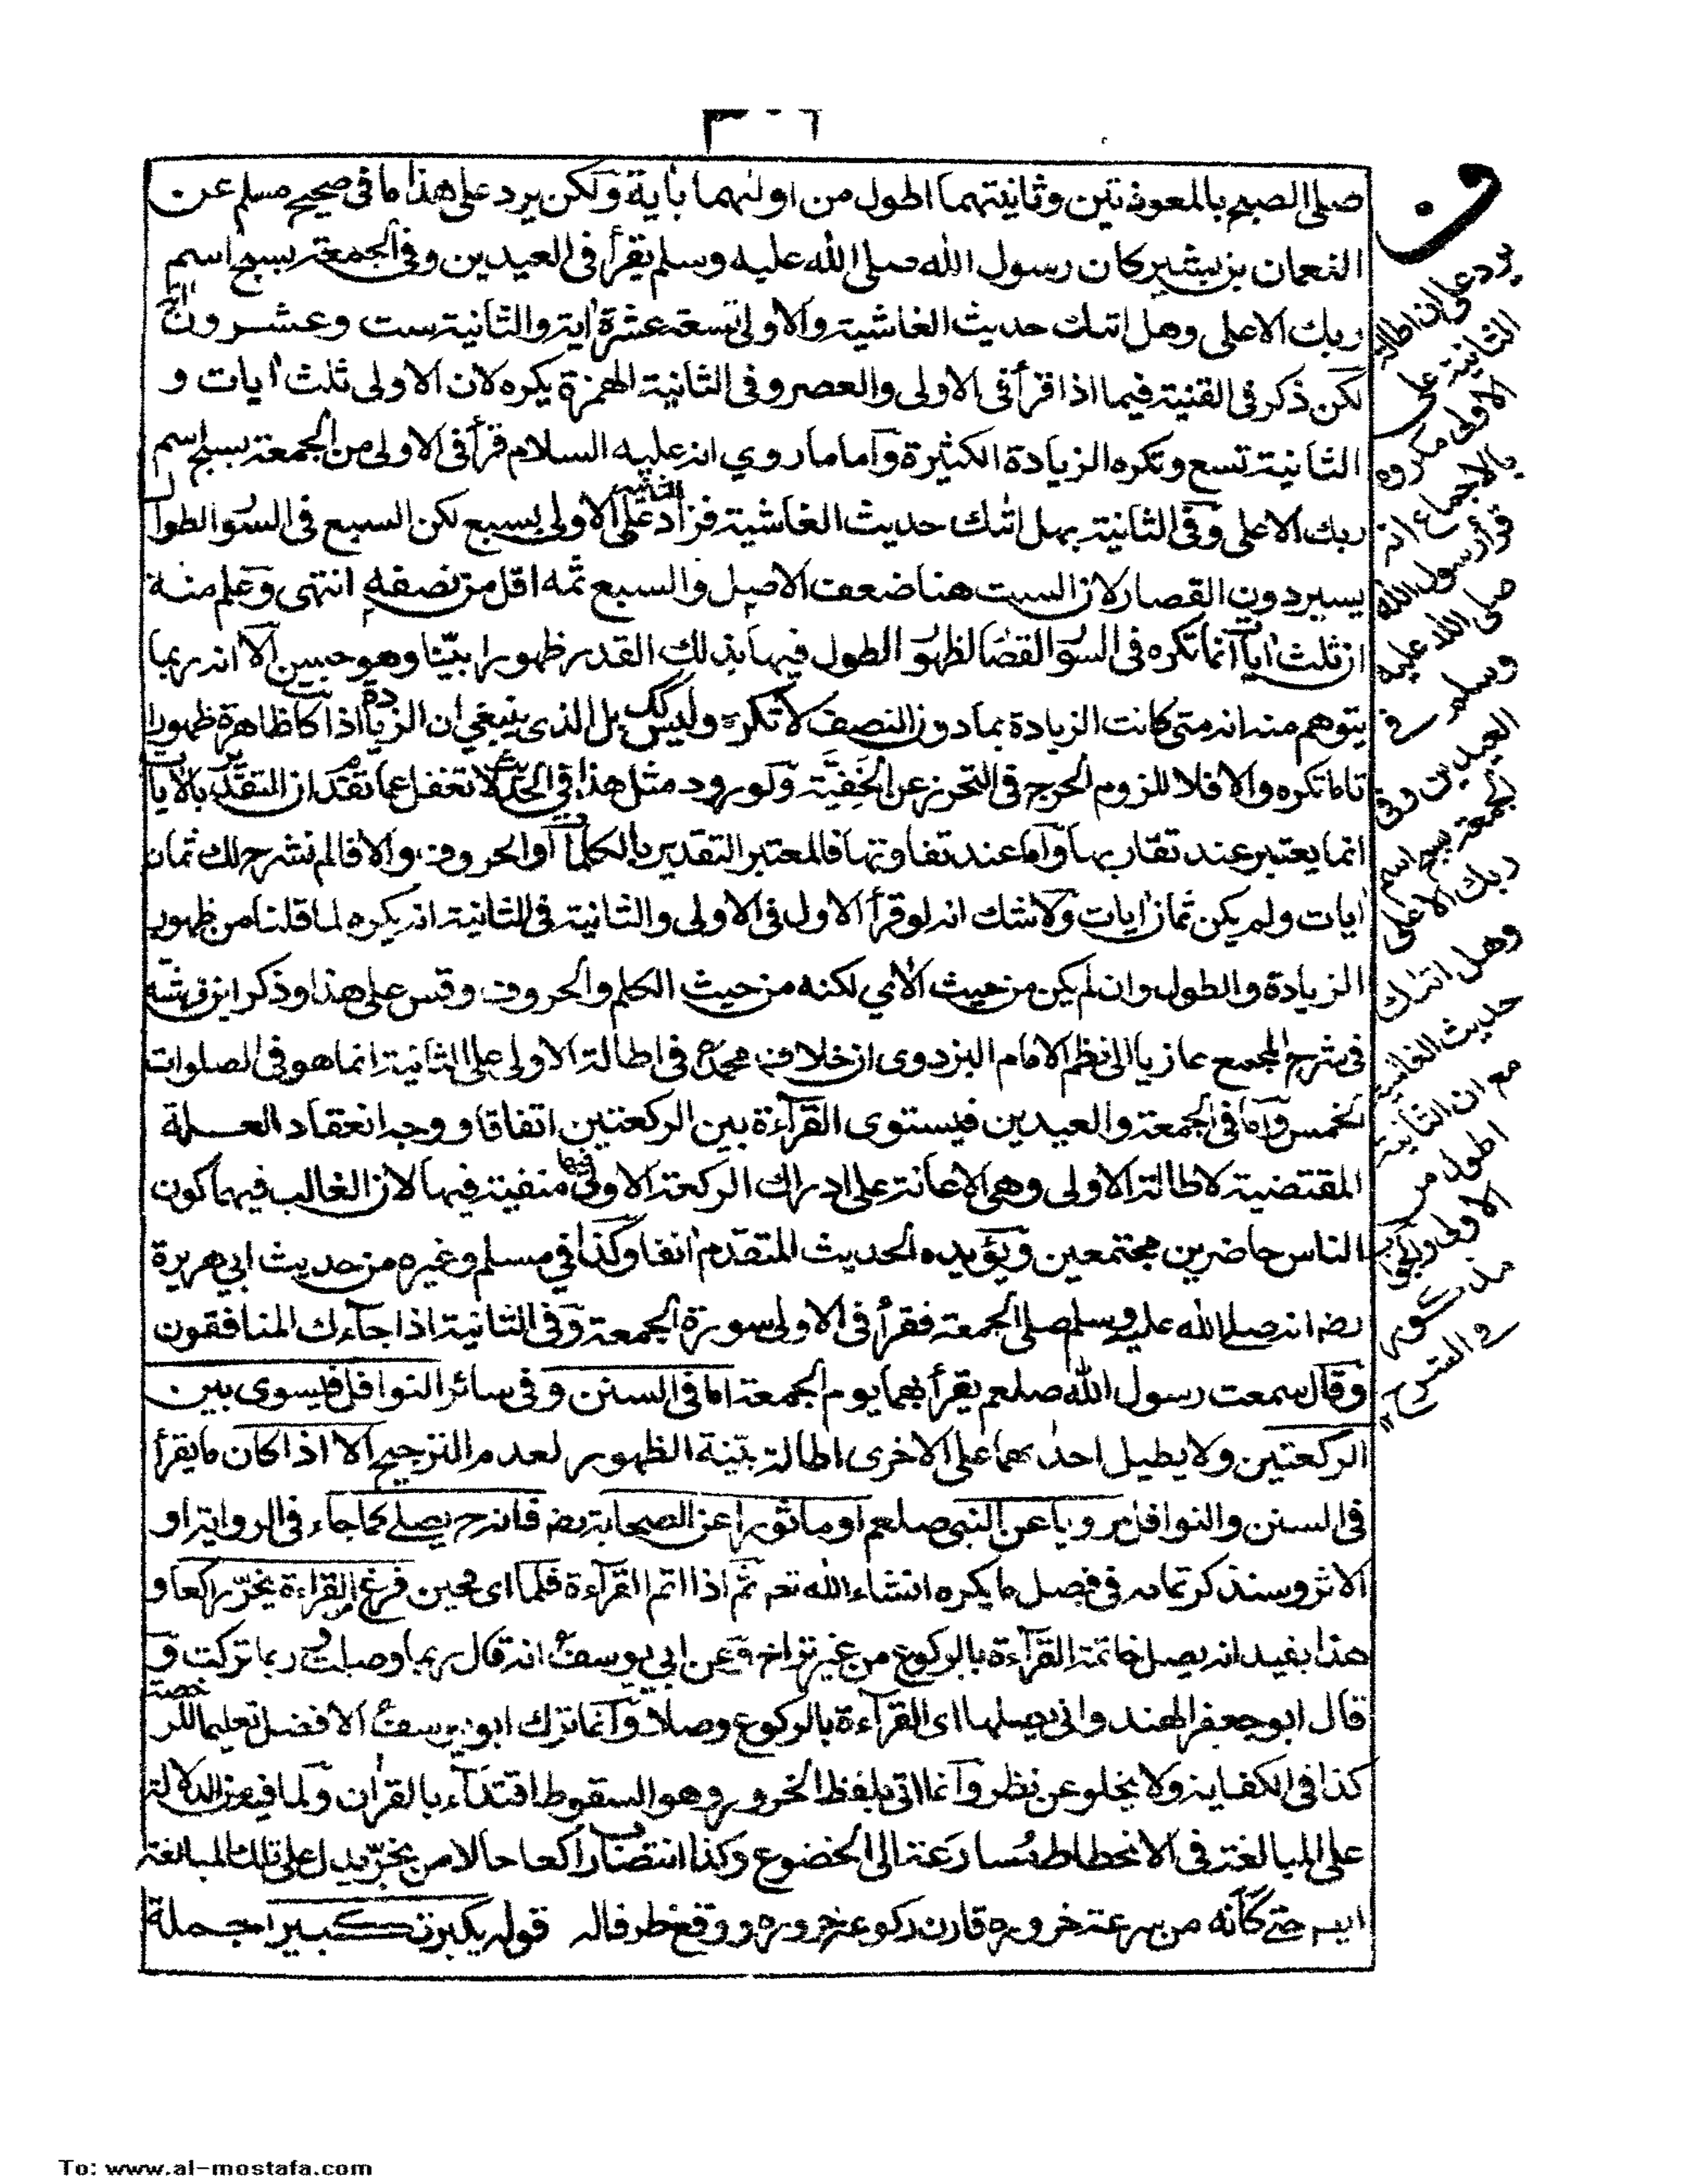 ٣٠٦
صلى الصبح بالمعوذتين وثانيتهما اطول من اولٰىهما بأية ولكن يرد على هذا ما فى صحيح مسلم عن
النعمان بن بشير كان رسول الله صلى الله عليه وسلم يقرأ فى العيدين وفى الجمعة بسبح اسم
ربك الاعلى وهل اتٰىك حديث الغاشية والاولى تسعة عشرة أية والثانية ست وعشرون
لكن ذكر فى القنية فيما اذا قرأ فى الاولى والعصر وفى الثانية الهمزة يكره لان الاولى ثلث أيات و
الثانية تسع وتكره الزيادة الكثيرة واما ما روي انه عليه السلام قرأ فى الاولى من الجمعة بسبح اسم
ربك الاعلى وفى الثانية بهل اتٰىك حديث الغاشية فزاد على الاولى بسبع لكن السبع فى السور الطوال
يسير دون القصار لان الست هنا ضعف الاصل والسبع ثمه اقل من نصفه انتهى وعلم منه
ان ثلث أيات انما تكره فى السور القصار لظهور الطول فيها بذلك القدر ظهورا بيّنا وهو حسن الا انه ربما
يتوهم منه انه متى كانت الزيادة بما دون النصف لا تكره وليس كك بل الذى ينبغي ان الزيادة اذا كا ظاهرة ظهورا
تاما تكره والا فلا للزوم الحرج فى التحرز عن الخفيّة ولورود مثل هذا في الحديث ولا تغفل عما تقدم ان التقدير بالأيات
انما يعتبر عند تقاربها واما عند تفاوتها فالمعتبر التقدير بالكلمات او الحروف والا فالم نشرح لك ثمان
أيات ولم يكن ثمان أيات ولا شك انه لو قرأ الاول فى الاولى والثانية فى الثانية انه يكره لما قلنا من ظهور
الزيادة والطول وان لم يكن من حيث الأي لكنه من حيث الكلم والحروف وقس على هذا وذكر ابن فرشته
فى شرح المجمع عازيا الى نظم الامام البزدوى ان خلاف محمد فى اطالة الاولى على الثانية انما هو فى الصلوات
الخمس واما فى الجمعة والعيدين فيستوى القرآءة بين الركعتين اتفاقا ووجه انعقاد العلة
المقتضية لاطالة الاولى وهى الاعانة على ادراك الركعة الاولى منفية فيها لان الغالب فيهما كون
الناس حاضرين مجتمعين ويؤيده الحديث المتقدم انفا وكذا في مسلم وغيره من حديث ابي هريرة
رضه انه صلى الله عليه وسلم صلى الجمعة فقرأ فى الاولى سورة الجمعة وفى الثانية اذا جآءك المنافقون
وقال سمعت رسول الله صلعم يقرأ بهما يوم الجمعة اما فى السنن وفى سائر النوافل فيسوى بين
الركعتين ولا يطيل احدٰىهما على الاخرى اطالة بيّنة الظهور لعدم الترجيح الا اذا كان ما يقرأ
فى السنن والنوافل مرويا عن النبى صلعم او ماثورا عن الصحابة رضه فانه ح يصلى كما جاء فى الرواية او
الاثر وسنذكر تمامه فى فصل ما يكره انشاء الله تعه ثم اذا اتم القرآءة فلما اى فحين فرغ القراءة يخرّ راكعا و
هذا يفيد انه يصل خاتمة القرآءة بالركوع من غير تراخ وعن ابي يوسف انه قال ربما وصلت ربما تركت و
قال ابو جعفر الهندوانى يصلها اى القرآءة بالركوع وصلا وانما ترك ابو يوسف الافضل تعليما للرخصة
كذا فى الكفاية ولا يخلو عن نظر وانما اتى بلفظ الخرور وهو السقوط اقتدآء بالقرأن ولما فيه من الدلالة
على المبالغة فى الانحطاط مسارعة الى الخضوع وكذا انتصاب راكعا حالا من يخرّ يدل على تلك المبالغة
ايضه حتى كأنه من سرعة خروره قارن ركوعه خروره ووقع ظرفا له قوله يكبر تكبيرا جملة
ف
يرد على ان اطالة
الثانية على
الاولى مكروه
بالاجماع انه
قرأ رسول الله
صلى الله عليه
وسلم فى
العيدين وفى
الجمعة بسبح اسم
ربك الاعلى
وهل اتٰىك
حديث الغاشية
مع ان الثانية
اطول من
الاولى وجوابه
مذكور
فى الشرح
To: www.al-mostafa.com